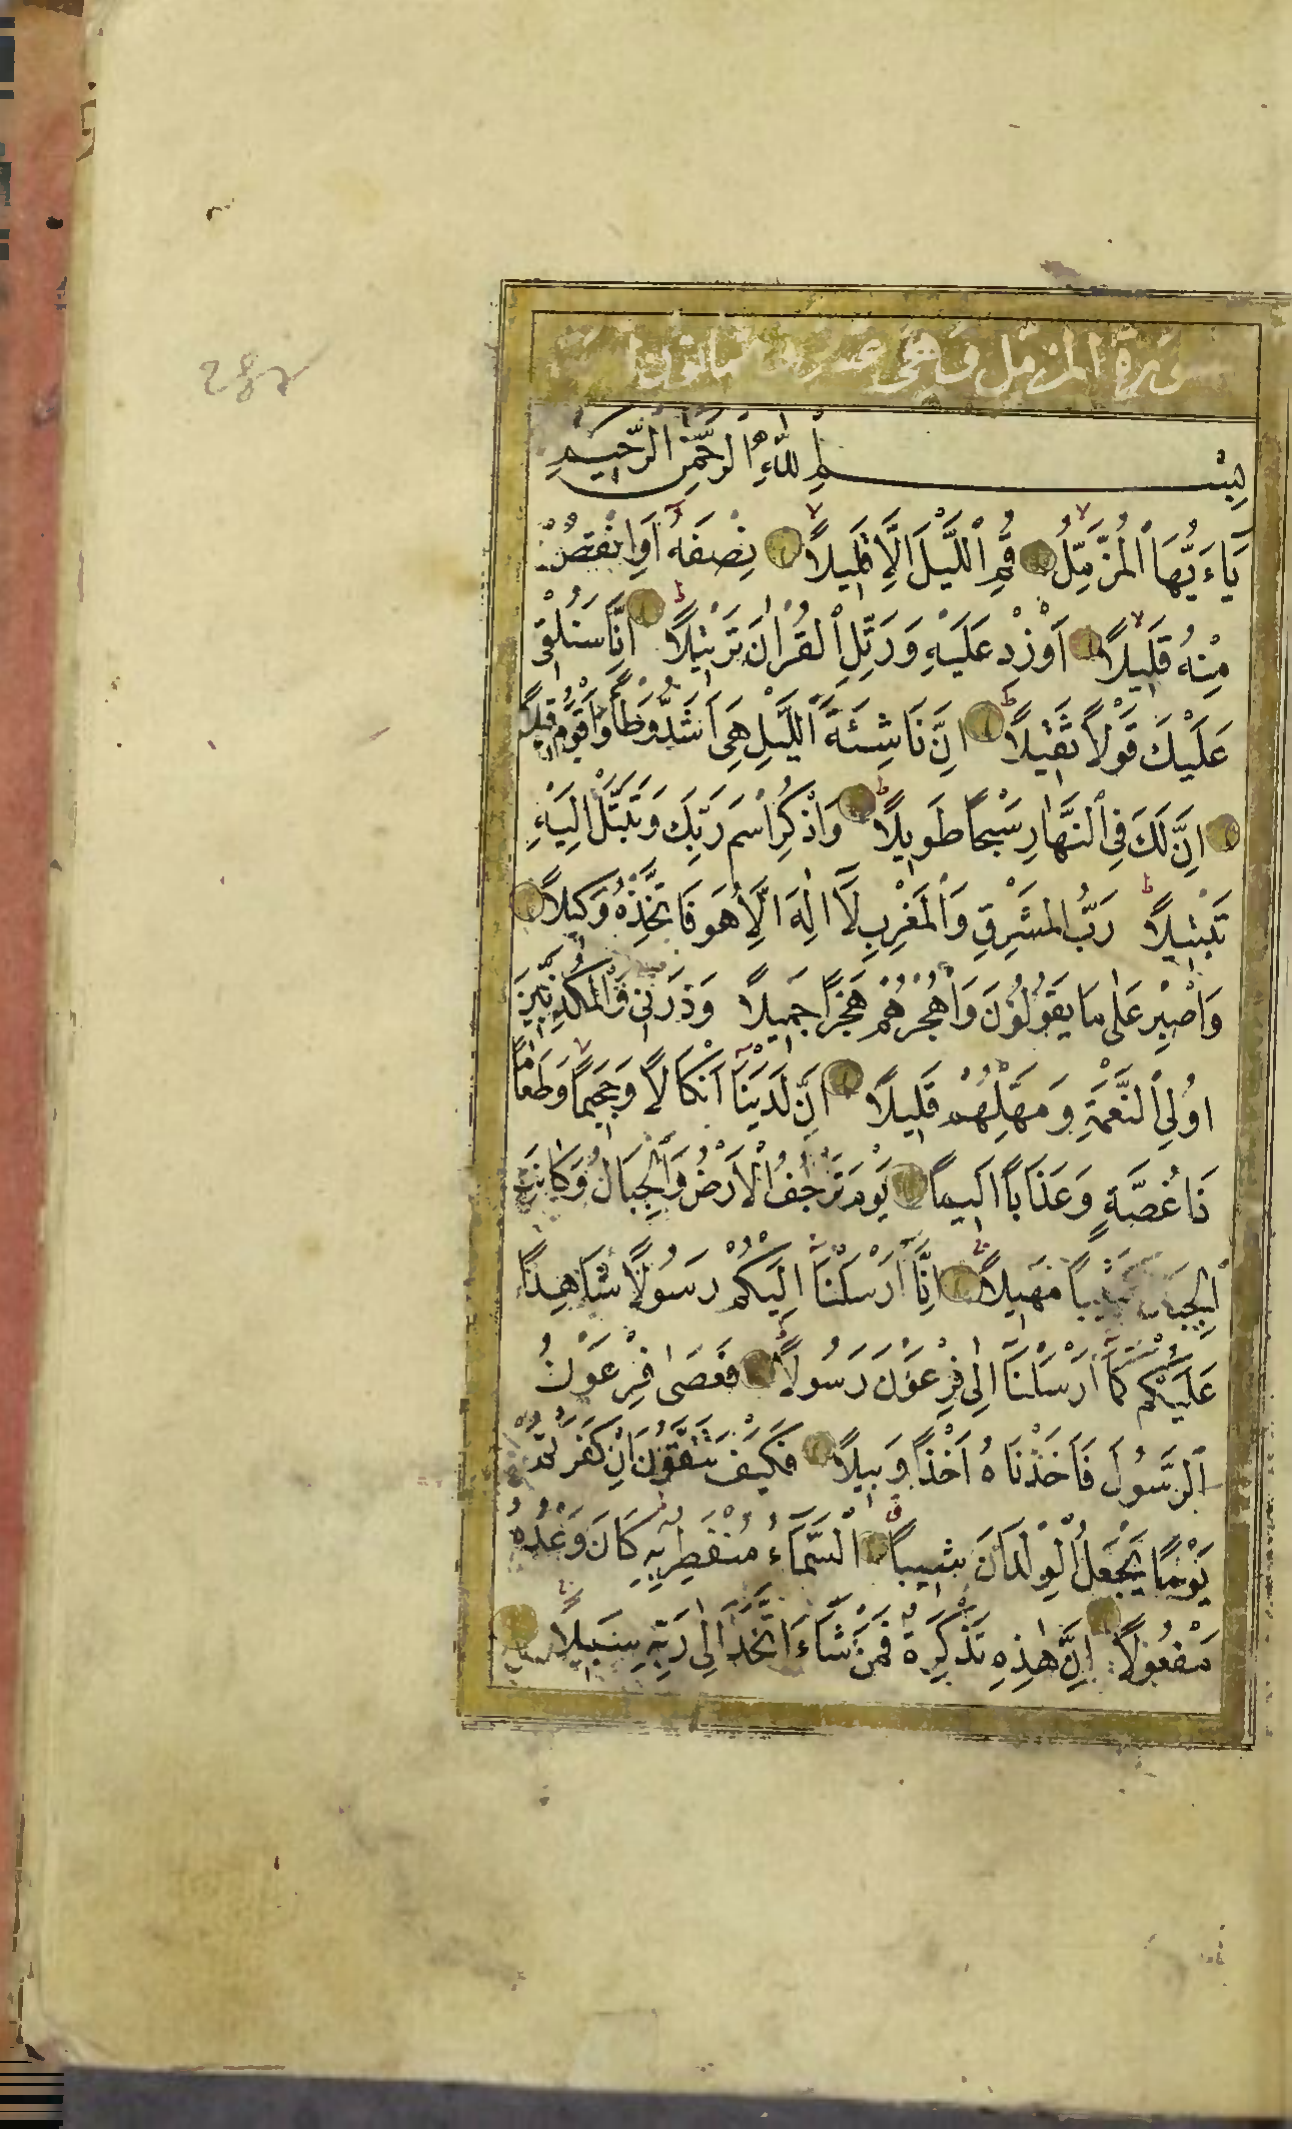 سورة المزمل وهى
بِسْمِ اللَّهِ الرَّحْمٰنِ الرَّحِيمِ
يَاءَيُّهَا الْمُزَّمِّلُ قُمِ اللَّيْلَ اِلَّا قَلِيلًا نِصْفَهُ اَوِ انْقُصْ
مِنْهُ قَلِيلًا اَوْ زِدْ عَلَيْهِ وَرَتِّلِ الْقُرْاٰنَ تَرْتِيلًا اِنَّا سَنُلْقِى
عَلَيْكَ قَوْلًا ثَقِيلًا اِنَّ نَاشِئَةَ اللَّيْلِ هِىَ اَشَدُّ وَطْأً وَاَقْوَمُ قِيلًا
اِنَّ لَكَ فِى النَّهَارِ سَبْحًا طَوِيلًا وَاذْكُرِ اسْمَ رَبِّكَ وَتَبَتَّلْ اِلَيْهِ
تَبْتِيلًا رَبُّ الْمَشْرِقِ وَالْمَغْرِبِ لَآ اِلٰهَ اِلَّا هُوَ فَاتَّخِذْهُ وَكِيلًا
وَاصْبِرْ عَلٰى مَا يَقُولُونَ وَاهْجُرْهُمْ هَجْرًا جَمِيلًا وَذَرْنِى وَالْمُكَذِّبِينَ
اُولِى النَّعْمَةِ وَمَهِّلْهُمْ قَلِيلًا اِنَّ لَدَيْنَا اَنْكَالًا وَجَحِيمًا وَطَعَامًا
ذَا غُصَّةٍ وَعَذَابًا اَلِيمًا يَوْمَ تَرْجُفُ الْاَرْضُ وَالْجِبَالُ وَكَانَتِ
الْجِبَالُ كَثِيبًا مَهِيلًا اِنَّآ اَرْسَلْنَآ اِلَيْكُمْ رَسُولًا شَاهِدًا
عَلَيْكُمْ كَمَآ اَرْسَلْنَآ اِلٰى فِرْعَوْنَ رَسُولًا فَعَصٰى فِرْعَوْنُ
الرَّسُولَ فَاَخَذْنَاهُ اَخْذًا وَبِيلًا فَكَيْفَ تَتَّقُونَ اِنْ كَفَرْتُمْ
يَوْمًا يَجْعَلُ الْوِلْدَانَ شِيبًا السَّمَآءُ مُنْفَطِرٌ بِهِ كَانَ وَعْدُهُ
مَفْعُولًا اِنَّ هٰذِهِ تَذْكِرَةٌ فَمَنْ شَآءَ اتَّخَذَ اِلٰى رَبِّهِ سَبِيلًا